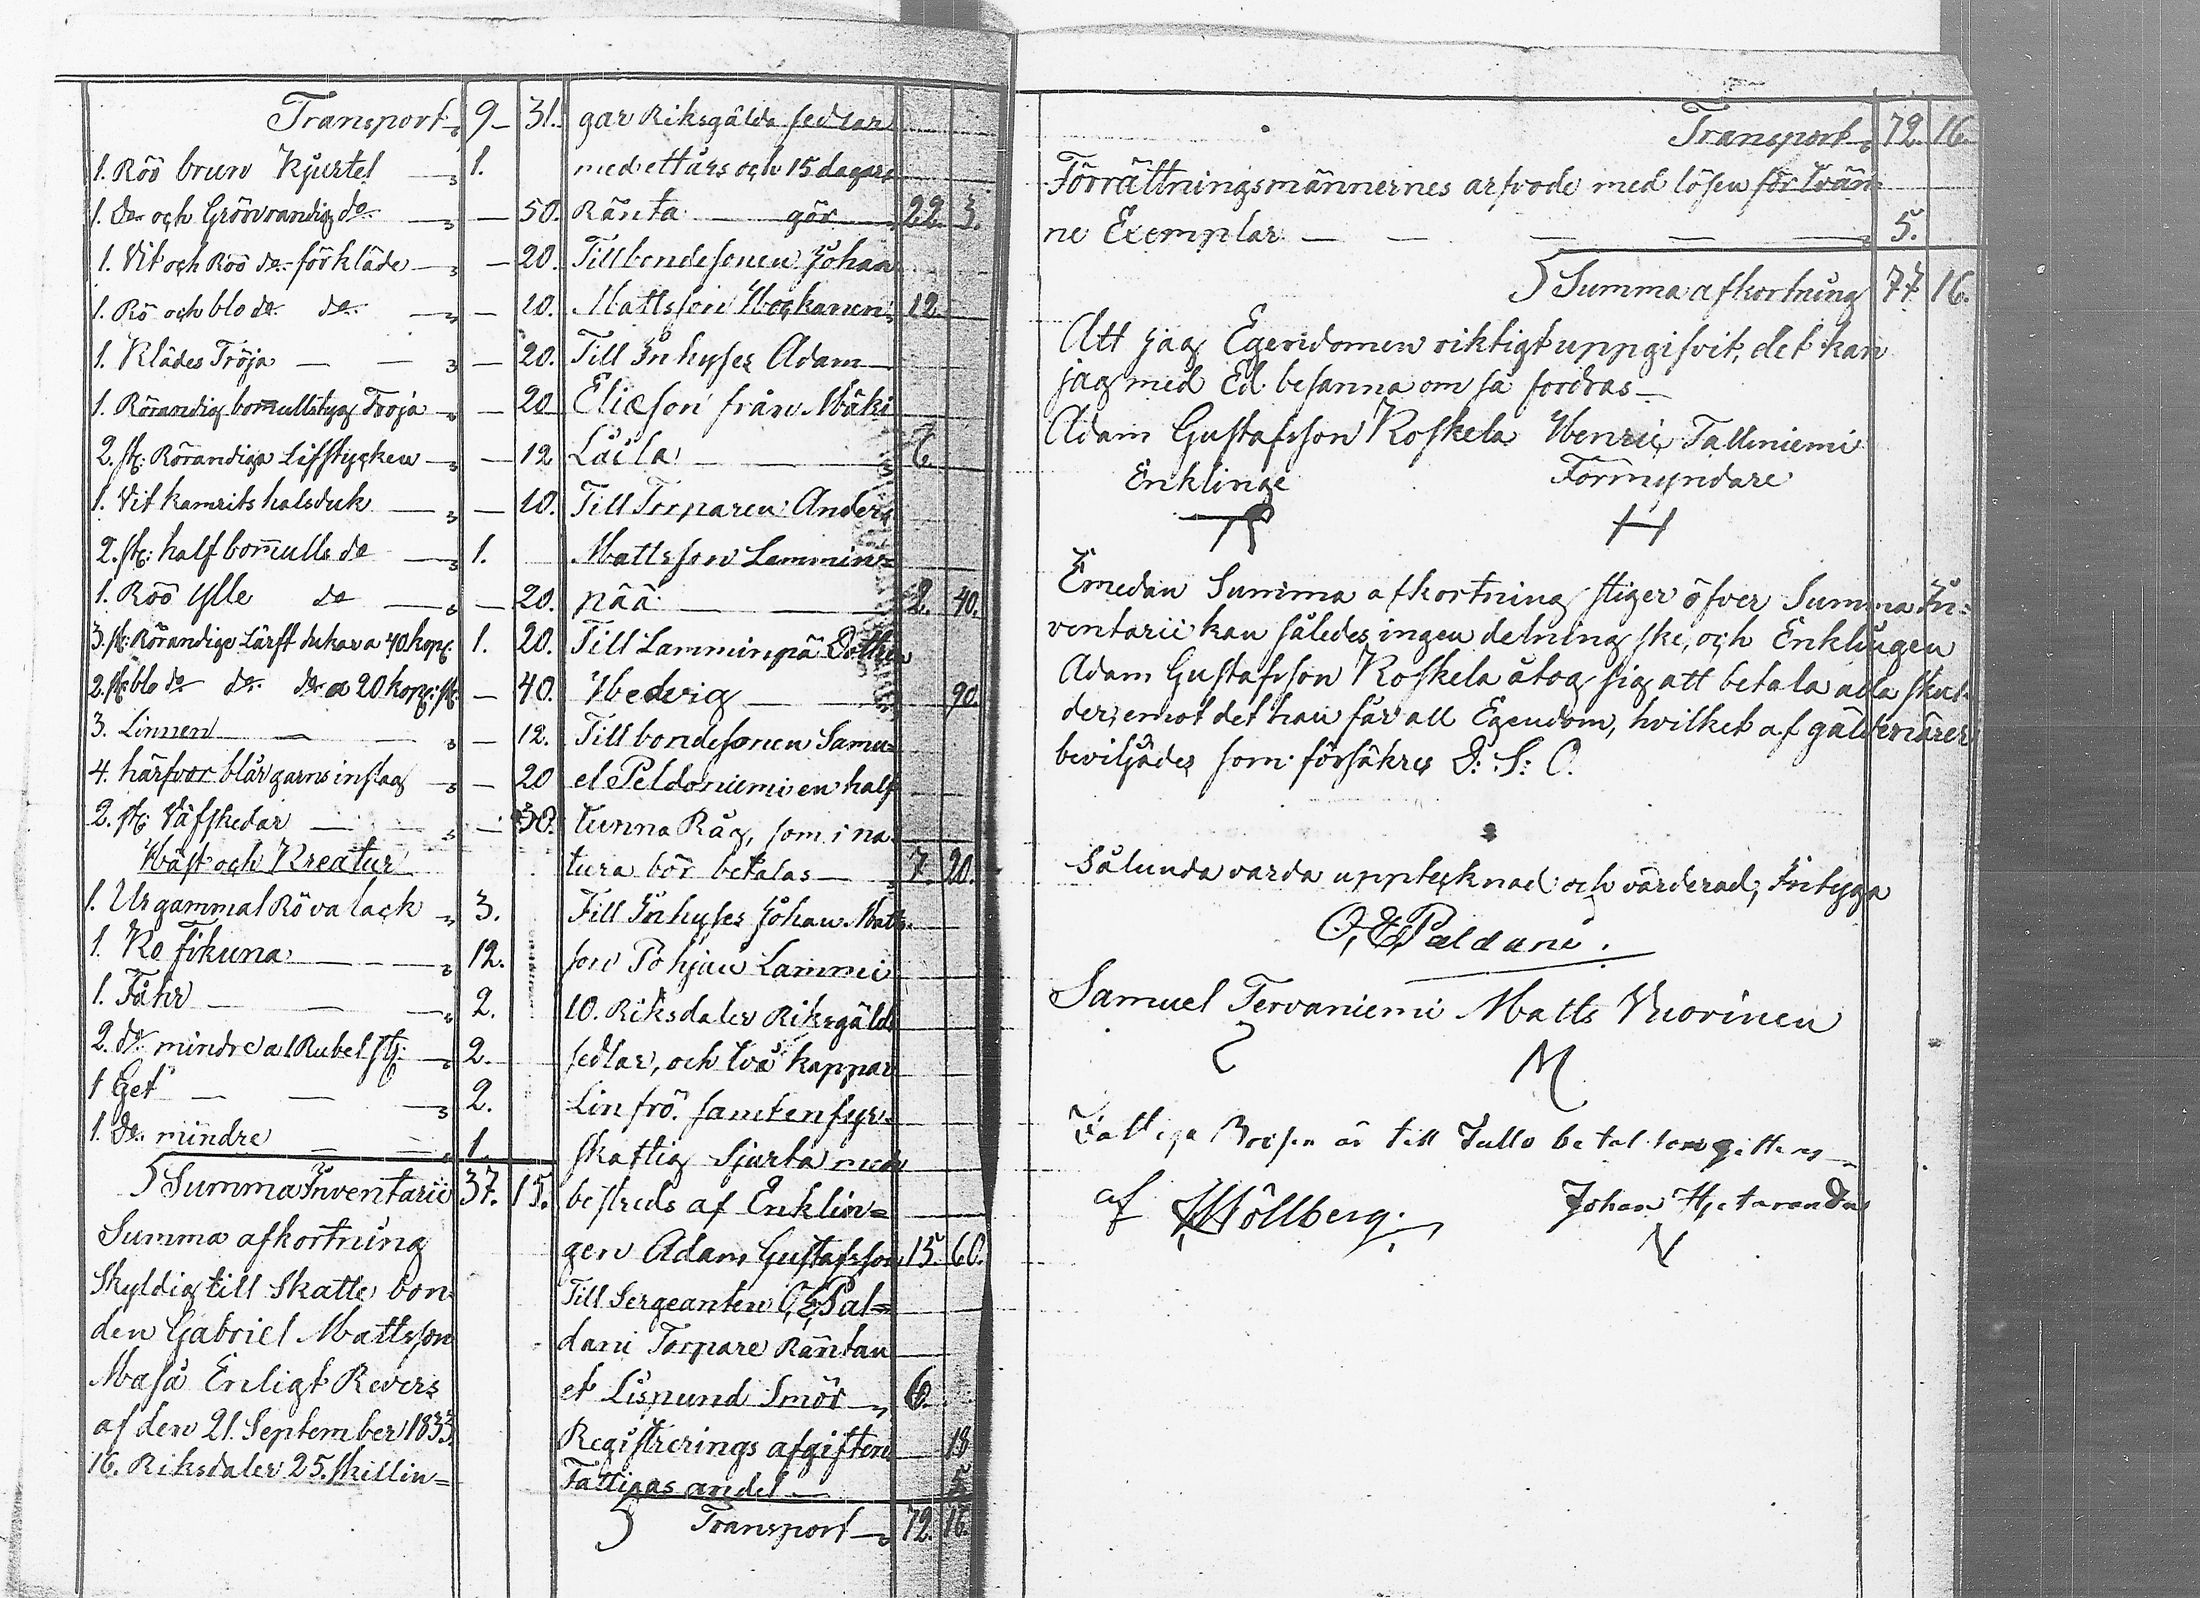 Transport 9 31.
1. Röö brun Kjurtel 1.
1. do och Grönrandig do — 50.
1. Vit och Röö do förkläde — 20.
1. Rö och blo do do — 10.
1. Klädes Tröja — — 20.
1. Rörandig bomullstyg Troja — 20
2. st: Rörandiga Lifstycken — 12
1. Vit kamrits halsduk — 10.
2. st: half bomulls do 1.
1. Röö ylle do — 20.
3. st: Rörandige Lärft dukar a 40 kop: 1. 20.
2. st: blo do do do a 20 kop: st: — 40.
3. Linnen — — 12.
4. härfvor blårgarns inslag — 20
2. st: Väfskedar — 30.
Häst och Kreatur
1. Ur gammal Rö valack 3.
1. Ko Fikuna 12.
1. Fåhr 2.
2. do mindre a 1 Rubel st: 2.
1 Get 2.
1. do mindre 1.
Summa Inventarii 37. 15.
Summa afkortning
Skyldig till Skatte bon-
den Gabriel Mattsson
Masa Enligt Revers
af den 21. September 1833.
16. Riksdaler 25. skillin=
gar Riksgälds sedlar
med ett års och 15 dagars
Ränta — gör 22. 3.
Till bondesonen Johan
Mattsson Hockanen 12.
Till Inhyses Adam
Eliæson från Mäki
Läila 6.
Till Torparen Anders
Mattsson Lammin=
pää 2. 40.
Till Laminpä Dotter
Hedvig 90.
Till bondesonen Samu=
el Peldoniemi en half
tunna Råg, som i na-
tura bör betalas 7. 20.
Till Inhyses Johan Matts-
son Pohjan Lammi
10. Riksdaler Riksgälds
sedlar, och två kappar
Lin frö. samt en fyr-
skaftig Sjurta
bestreds af Enklin=
gen Adam Gustafsson 15. 60.
Till Sergeanten O, E, Pal=
dani Torpare Räntan
et Lispund Smör 6.
Registrerings afgiften 18
Fattigas andel 5
Transport 72. 16.
Transport 72. 16.
Förrättningsmännernes arfvode med lösen för tvän-
ne Exemplar — — — — 5.
Summa afkortning 77 16.
Att jag Egendomen riktigt uppgifvit, det kan
jag med Ed besanna om så fordras —
Adam Gustafsson Koskela Henric Talluniemi
Enklinge Förmyndare
Emedan Summa afkortning stiger öfver Summa In=
ventarii kan således ingen delning ske, och Enklingen
Adam Gustafsson Koskela åtog sig att betala alla skul-
der, emot det han får all Egendom, hvilket af gäldenärer
beviljades som försäkres D: S: O.
Sålunda varda upptecknad och värderad; Intyga
O, E, Paldani.
Samuel Tervaniemi Matts Vuorinen
M
Fattiga till fullo
af Höllberg. Johan